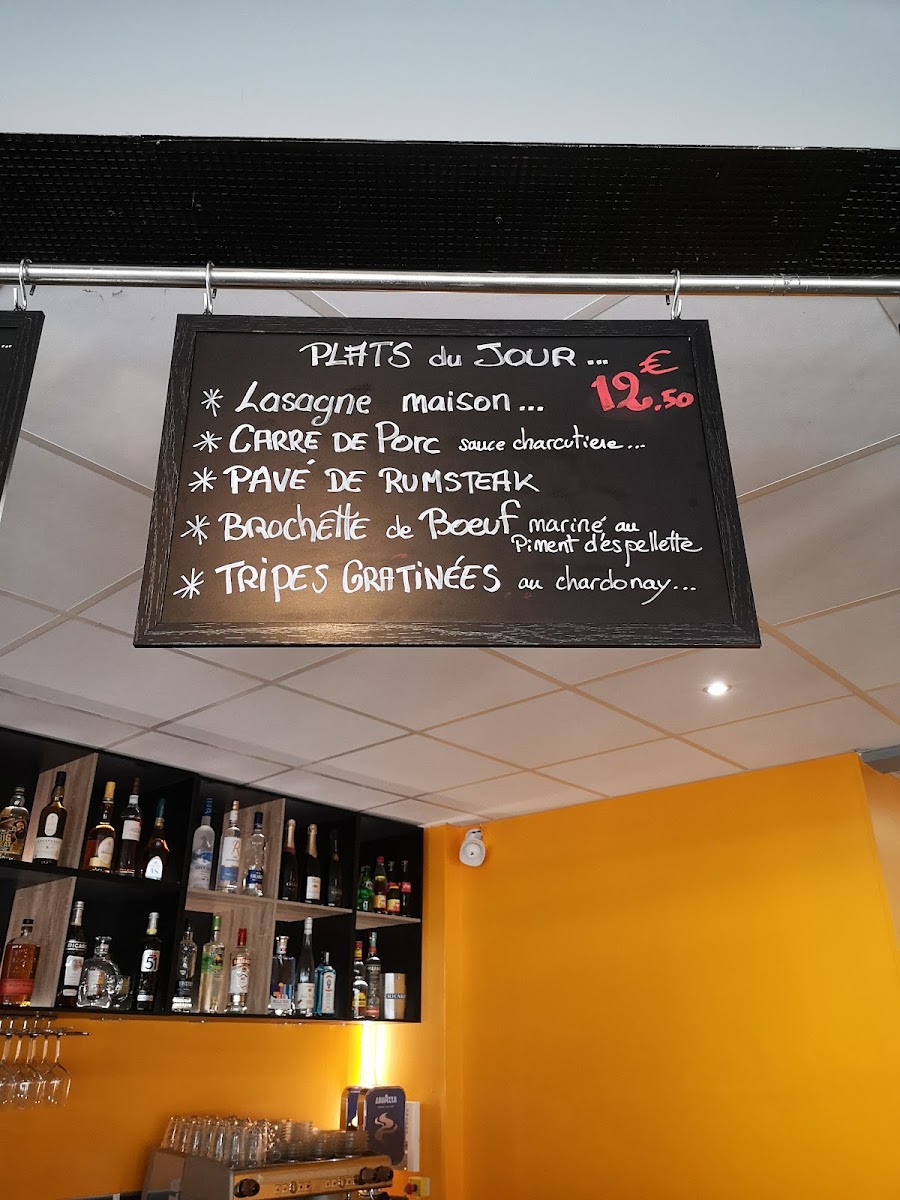 PLATS du JOUR...
12.50 €
* Lasagne maison...
* CARRE DE PORC sauce charcutiere...
* PAVÉ DE RUMSTEAK
* BROCHETTE de BOEUF mariné au
Piment d'espellette
* TRIPES GRATINÉES au chardonay...
LAVAZZA